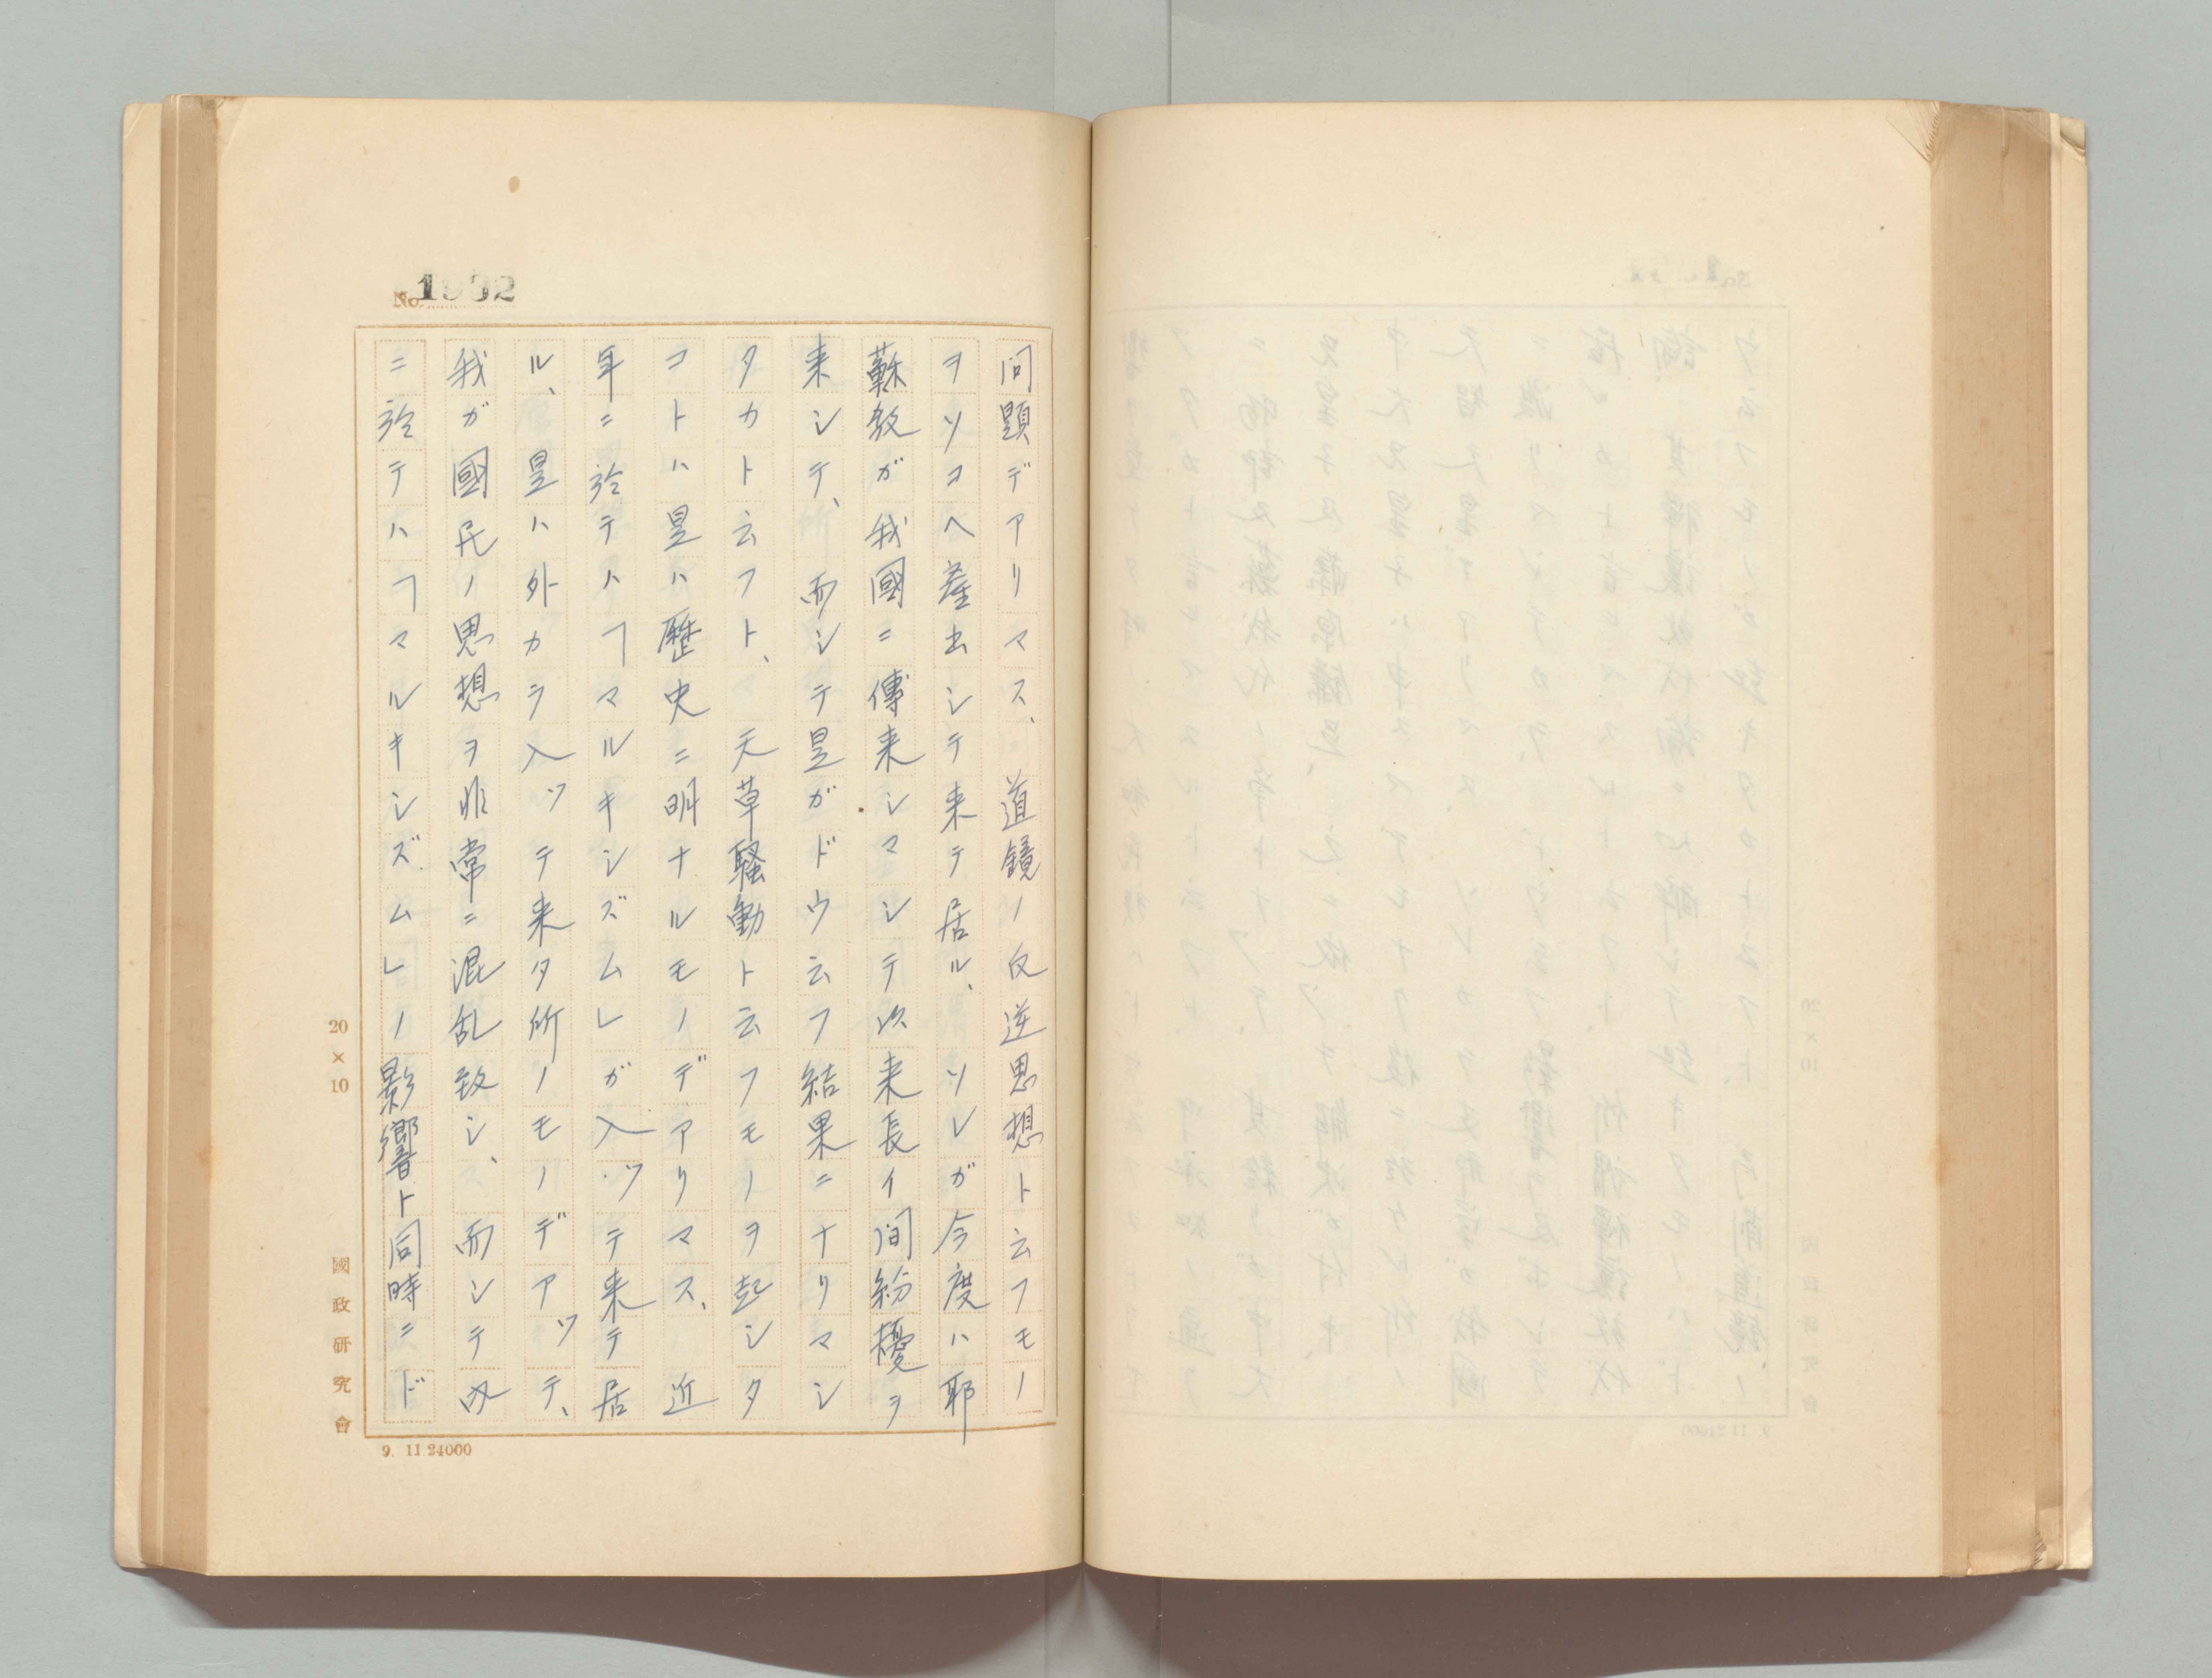 No. 1932
問題デアリマス、道鏡ノ反逆思想ト云フモノ
ヲソコヘ産出シテ来テ居ル、ソレガ今度ハ耶
蘇教ガ我國ニ傳来シマシテ以来長イ間紛擾ヲ
来シテ、而シテ是ガドウ云フ結果ニナリマシ
タカト云フト、天草騒動ト云フモノヲ起シタ
コトハ是ハ歴史ニ明ナルモノデアリマス、近
年ニ於テハ「マルキシズム」ガ入ッテ来テ居
ル、是ハ外カラ入ッテ来タ所ノモノデアッテ、
我ガ國民ノ思想ヲ非常ニ混乱致シ、而シテ内
ニ於テハ「マルキシズム」ノ影響ト同時ニド
20×10
國政研究會
9. 11 24000